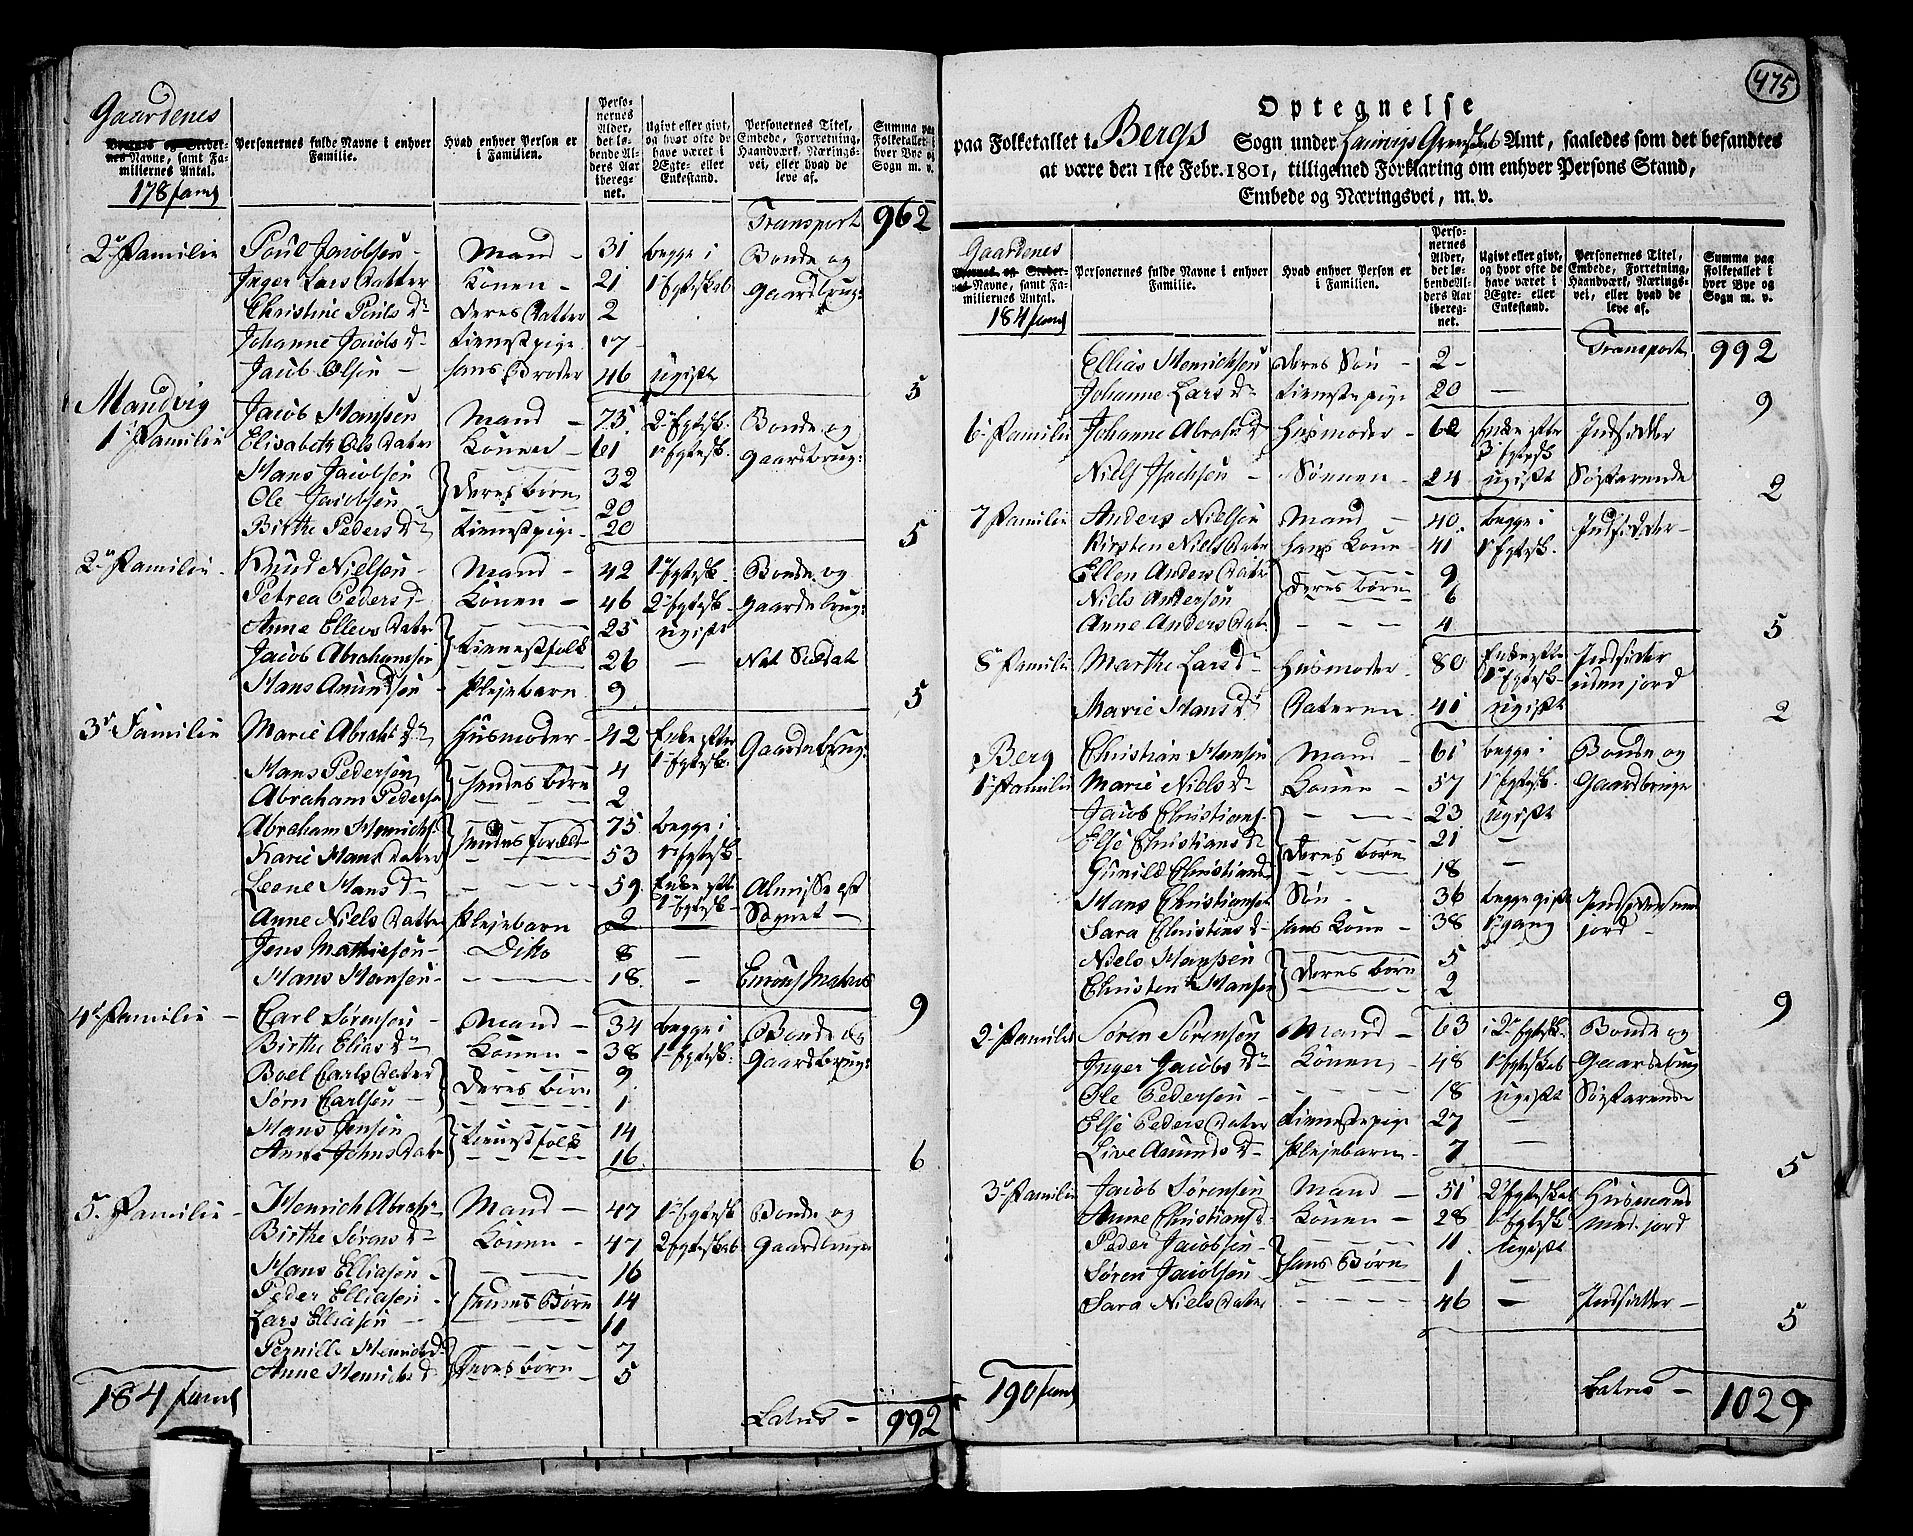 Gaardenes
Byernes og Stedernes Navne, samt Familiernes Antal.
Personernes fulde Navne i enhver Familie.
Hvad enhver Person er i Familien.
Personernes Alder, det løbende Alders Aar iberegnet.
Ugivt eller givt, og hvor ofte de have været i Ægte- eller Enkestand.
Personernes Titel, Embede, Forretning, Haandværk, Næringsvei, eller hvad de leve af.
Summa paa Folketallet i hver Bye og Sogn m. v.
178 fam
Transport 962
2 Familie Poul Jacobsen - Mand - 31 begge i Bonde og
Inger Lars Datter Konen - 21 1 Egteskab Gaardbrug:
Christine Pouls Dr Deres Datter 2
Johanne Jacobs Dr tienestpige 17
Jacob Olsen - hans Broder 46 ugift
5
Mandvig Jacob Hansen Mand - 73 2 Egtesk. Bonde og
1 Familie Elisabeth Ols Dater Konen - 61 1 Egtesk. Gaardbrug:
Hans Jacobsen } Deres børn 32
Ole Jacobsen 20
Birthe Peders Dr tienestpige 20
5
2 Familie Knud Nielsen - Mand - 42 1 Egtesk. Bonde og
Petrea Peders Dr Konen - 46 2 Egtesk. Gaardebrug:
Anne Ellevs Dater } tienestfolk 25 ugift
Jacob Abrahamsen 26 - Nat Soldat
Hans Amundsen - Plejebarn 9
5
3 Familie Marie Abrah: Dr Husmoder - 42 Enke efter Gaardebrug:
1 Egtesk.
Hans Pedersen } hendes børn 4
Abraham Pedersen 2
Abraham Henrichs: } hendes foræld 75 begge i
Karie Hans Dater 53 1 Egtesk.
Leene Hans Dr - 59 Enke efte Almisse af
1 Egtesk. Sognet -
Anne Niels Datter Plejebarn 2
Jens Mathiesen - Dito 8 -
Hans Hansen - 18 -
9
4 Familie - Carl Sørensen - Mand - 34 begge i Bonde og
Birthe Elias Dr Konen - 38 1 Egtesk. Gaardbrug:
Boel Carls Dater } Deres børn 9
Sørn Carlsen - 1
Hans Jensen } tienestfolk 14
Anne Johns Dater 16
6
5 Familie - Henrich Abrah: Mand - 47 1 Egtesk Bonde og
Birthe Sørens Dr Konen - 47 2 Egteskab Gaardbruger
Hans Elliasen - } hendes Børn 16
Peder Elliasen - 14
Lars Elliasen - 11
Pernille Henrichs Dr } Deres børn 7
Anne Henrichs Dr 5
184 fam Latus - 992
475
Optegnelse
paa Folketallet i Bergs Sogn under Laurvigs Grevskabs Amt, saaledes som det befandtes
at være den 1ste Febr. 1801, tilligemed Forklaring om enhver Persons Stand,
Embede og Næringsvei, m. v.
Gaardenes
Byernes og Stedernes Navne, samt Familiernes Antal.
Personernes fulde Navne i enhver Familie.
Hvad enhver Person er i Familien.
Personernes Alder, det løbende Alders Aar iberegnet.
Ugivt eller givt, og hvor ofte de have været i Ægte- eller Enkestand.
Personernes Titel, Embede, Forretning, Haandværk, Næringsvei, eller hvad de leve af.
Summa paa Folketallet i hver Bye og Sogn m. v.
184 fam
Transport 992
Ellias Henrichsen Deres Søn - 2
Johanne Lars Dr tienestepige 20 -
9
6 Familie Johanne Abrah: D Husmoder - 62 Enke efter Indsidder
3 Egtesk
Niels Isachsen - Sønnen - 24 ugift Søefarende
2
7 Familie Anders Nielsen Mand - 40 begge i Indsidder -
Kirsten Niels Dater hans Kone - 41 1 Egtesk.
Ellen Anders Dater } Deres børn 9
Niels Andersen 6
Anne Anders Dat: 4
5
8 Familie Marthe Lars Dr Husmoder 80 Enke efte Indsider
1 Egtesk- uden jord
Marie Hans Dr Dateren 41 ugift
2
Berg Christian Hansen Mand - 61 begge i Bonde og
1 Familie Marie Niels Dr Konen - 57 1 Egtesk. Gaardbruger
Jacob Christians: } Deres børn 23 ugift
Else Christians Dr 21 -
Gunild Christians D 18 -
Hans Christiansen Søn - 36 begge gift Indsider med
Sara Christens Dr hans Kone - 38 1 gang jord -
Niels Hansen } Deres børn 5
Christen Hansen 2
9
2 Familie Søren Sørensen Mand - 63 i 2 Egtesk. Bonde og
Inger Jacobs Dr Konen - 48 1 Egteskab Gaardebrug
Ole Pedersen - 18 ugift Søefarende
Else Peders Dater tienestepige 27 -
Live Amunds Dr Plejebarn - 7 -
5
3 Familie Jacob Sørensen Mand - 51 2 Egteskab Husmand
Anne Christians D. Konen - 28 1 Egtesk. med jord
Peder Jacobsen - } hans Børn 11 ugift
Søren Jacobsen 1 -
Sara Niels Dater 46 - Indsidder -
5
190 fam Latus - 1029